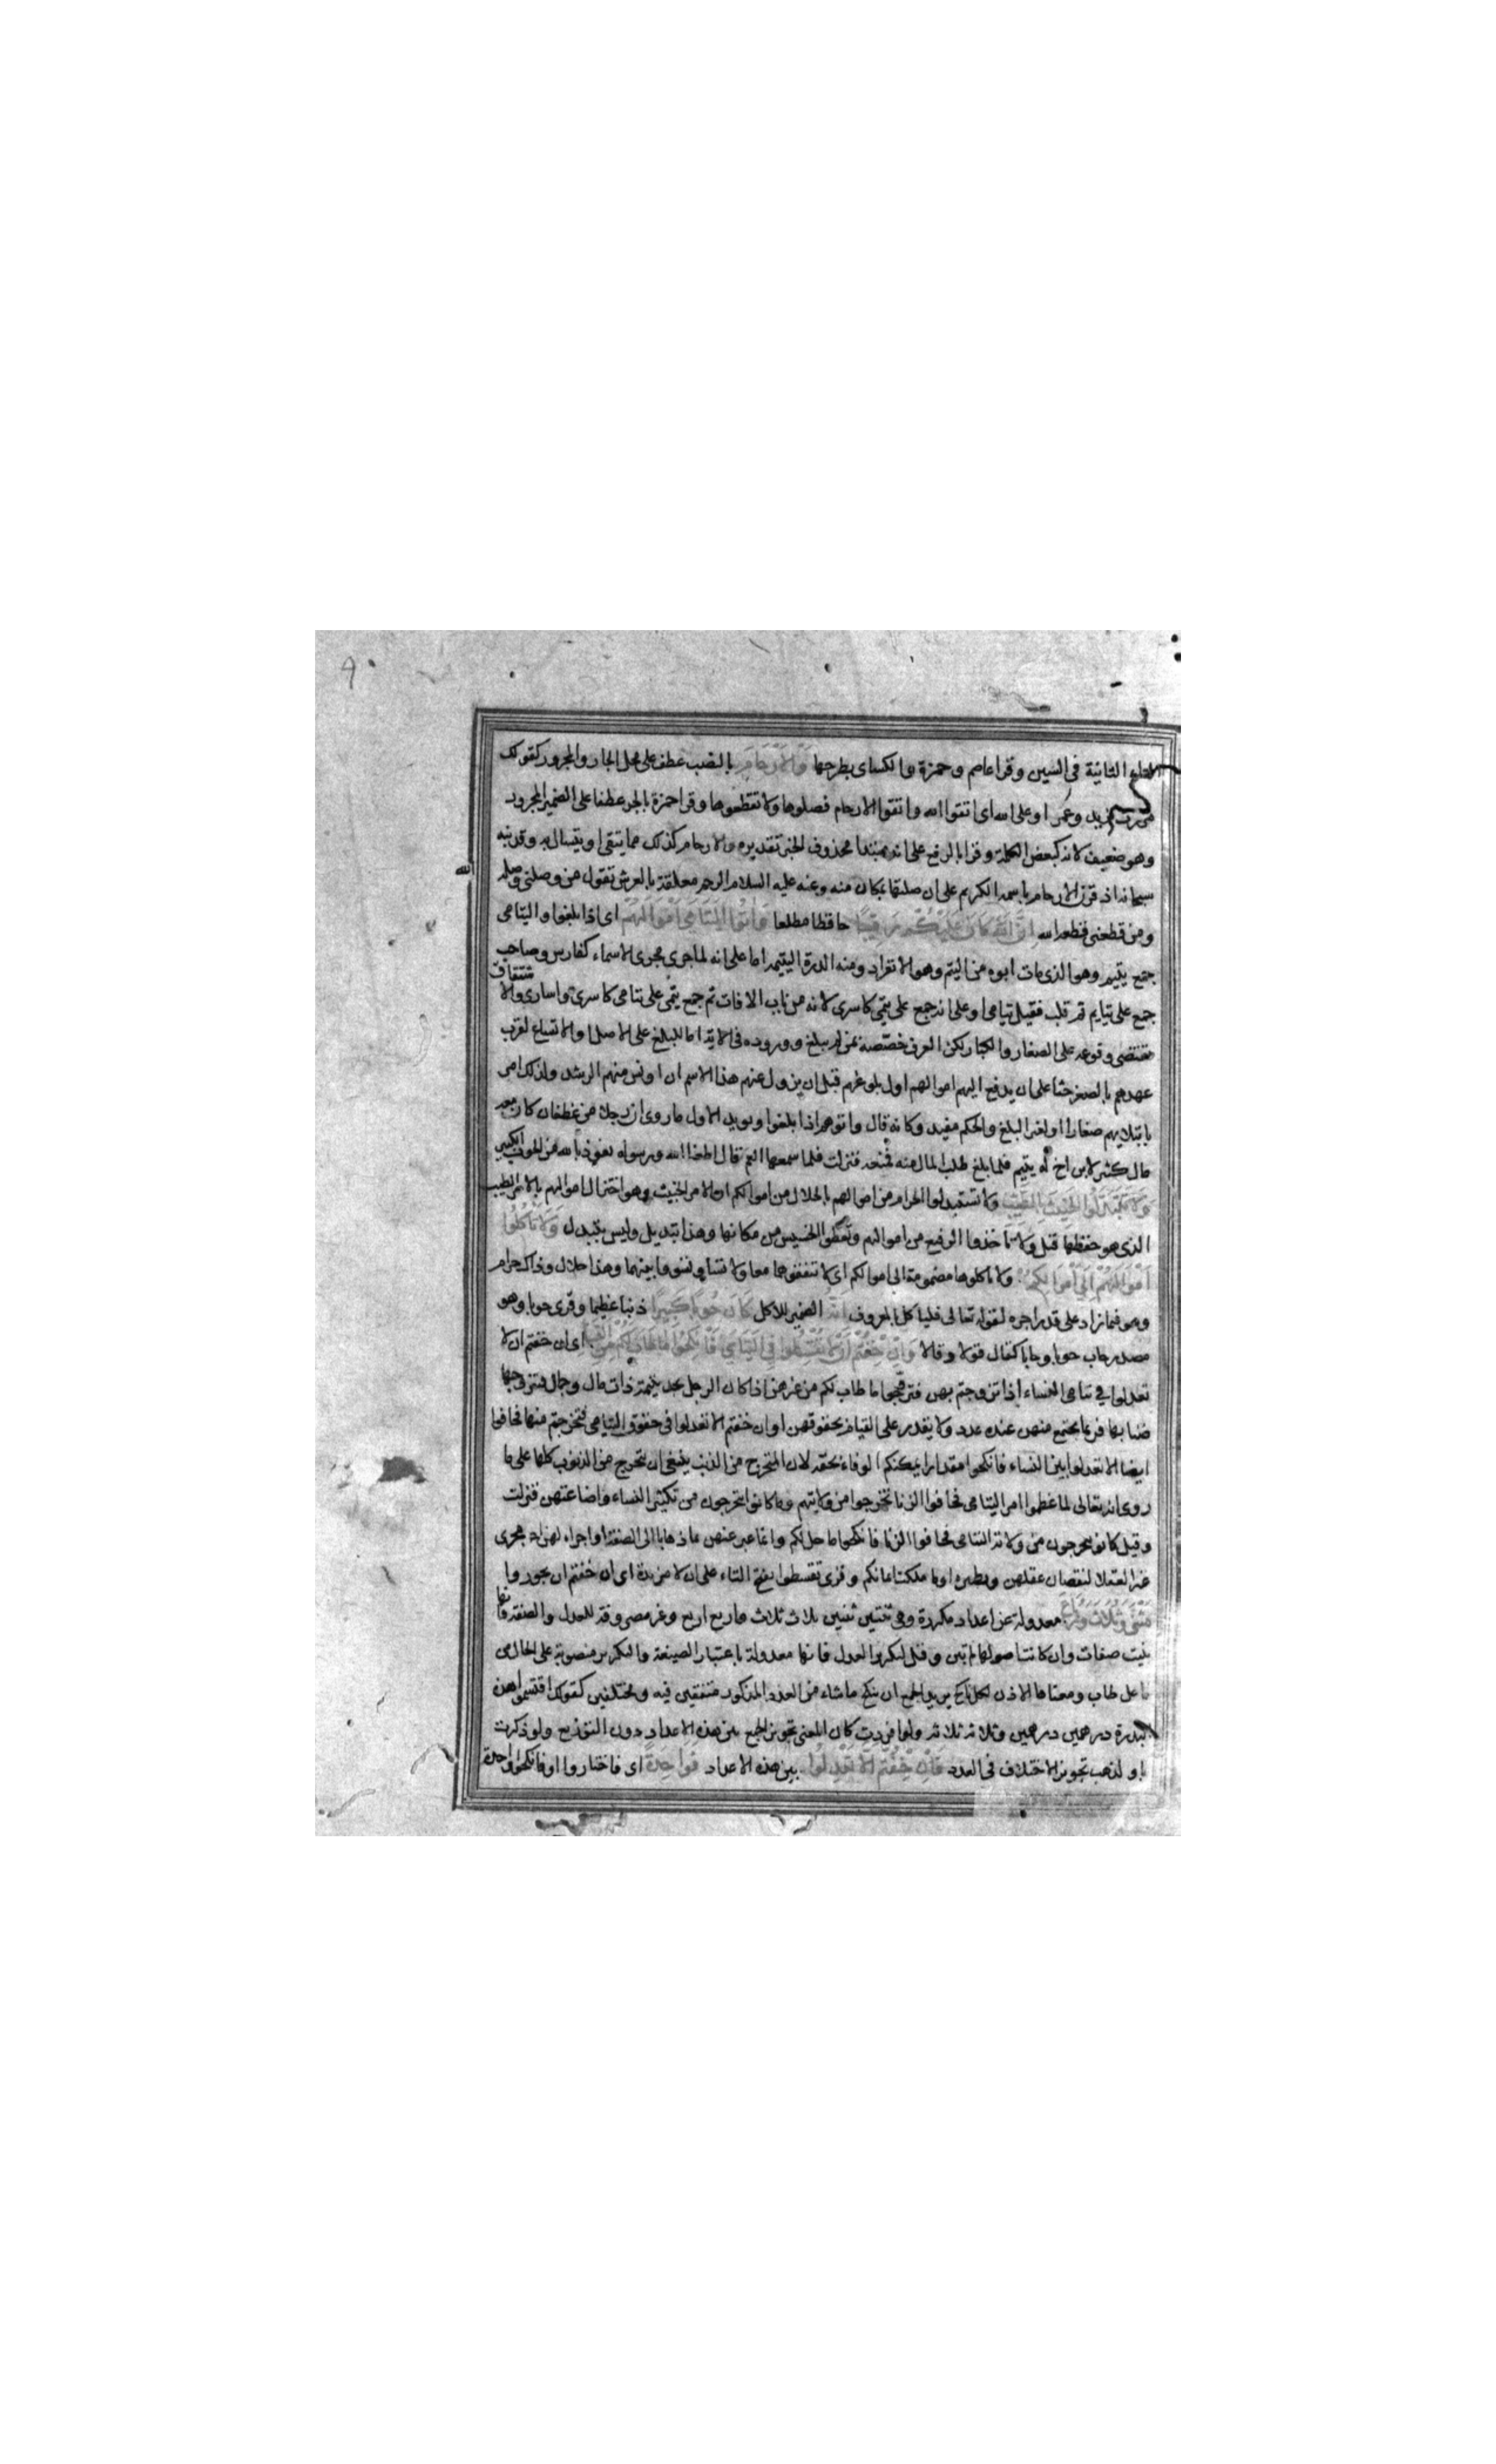 التاء الثانية في السين وقرا عاصم وحمزة والكسائ بطرحها وَالأَرْحَامَ بالنصب عطف على محل الجار والمجرور كقولك
مررت بزيد وعمرا او على الله اى اتقوا الله واتقوا الارحام فصلوها ولا تقطعوها وقرا حمزة بالجر عطفا على الضمير المجرور
وهو ضعيف لانه كبعض الكلمة وقرا بالرفع على انه مبتدا محذوف الخبر تقديره والارحام كذلك مما يتقى او يتسال به وقد نبه
سبحانه اذ قرن الارحام باسمه الكريم على ان صلتها بمكان منه وعنه عليه السلام الرحم معلقة بالعرش تقول من وصلنى وصله
الله
ومن قطعنى قطعه الله اِنَّ اللَّهَ كَانَ عَلَيْكُمْ رَقِيبًا حافظا مطلعا وَآتُوا الْيَتَامَى أَمْوَالَهُمْ اى اذا بلغوا واليتامى
جمع يتيم وهو الذى مات ابوه من اليتم وهو الانفراد ومنه الدرة اليتيمة اما على انه لما جرى مجرى الاسماء كفارس وصاحب
جمع على يتايم ثم قلب فقيل يتامى او على انه جمع على يتمى كاسرى لانه من باب الافات ثم جمع يتمى على يتامى كاسرى واسارى والاشتقاق
مقتضى وقوعه على الصغار والكبار لكن العرف خصصه بمن لم يبلغ ووروده فى الاية اما للبلغ على الاصل او الاتساع لقرب
عهدهم بالصغر حثا على ان يدفع اليهم اموالهم اول بلوغهم قبل ان يزول عنهم هذا الاسم ان اونس منهم الرشد ولذلك امر
بابتلايهم صغارا او لغير البلغ والحكم مفيد وكانه قال واتوهم اذا بلغوا ويويد الاول ما روى ان رجلا من غطفان كان معه
مال كثير لابن اخ له يتيم فلما بلغ طلب المال منه فمنعه فنزلت فلما سمعها العم قال اطعنا الله ورسوله نعوذ بالله من الحوب الكبير
وَلَا تَتَبَدَّلُوا الْخَبِيثَ بِالطَّيِّبِ ولا تستبدلوا الحرام من اموالهم بالحلال من اموالكم او الامر الخبيث وهو اختزال اموالهم بالامر الطيب
الذى هو حفظها قيل ولا تاخذوا الرفيع من اموالهم وتعطوا الخسيس من مكانها وهذا تبديل وليس بتبدل وَلَا تَأْكُلُوا
أَمْوَالَهُمْ إِلَى أَمْوَالِكُمْ ولا تاكلوها مضمومة الى اموالكم اى لا تنفقوهما معا ولا تسووا بينهما وهذا حلال وذاك حرام
وهو فيما زاد على قدر اجره لقوله تعالى فليأكل بالمعروف إِنَّهُ الضمير للاكل كَانَ حُوبًا كَبِيرًا ذنبا عظيما وقرى حوبا وهو
مصدر حاب حوبا وحابا كقال قولا وقالا وَإِنْ خِفْتُمْ أَلَّا تُقْسِطُوا فِي الْيَتَامَى فَانْكِحُوا مَا طَابَ لَكُمْ مِنَ النِّسَاءِ اى ان خفتم ان لا
تعدلوا في يتامى النساء اذا تزوجتم بهن فتزوجوا ما طاب لكم من غيرهن اذ كان الرجل يجد يتيمة ذات مال وجمال فيتزوجها
ضنا بها فربما يجتمع منهن عنده عدد ولا يقدر على القيام بحقوقهن او ان خفتم الا تعدلوا فى حقوق اليتامى فتحرجتم منها فخافوا
ايضا الا تعدلوا بين النساء فانكحوا مقدارا يمكنكم الوفاء بحقه لان المتحرج من الذنب ينبغى ان يتحرج من الذنوب كلها على ما
روى انه تعالى لما عظموا امر اليتامى فخافوا الزنا تحرجوا من ولايتهم وما كانوا يتحرجون من تكثير النساء واضاعتهن فنزلت
وقيل كانوا يتحرجون من ولاية اليتامى فخافوا الزنا فانكحوا ما حل لكم وانما عبر عنهن بما ذهابا الى الصفة او اجراء لهن مجرى
غير العقلا لنقصان عقلهن ونظيره او ما ملكت ايمانكم وقرى تقسطوا بفتح التاء على ان لا مزيدة اى ان خفتم ان تجوروا
مَثْنَى وَثُلَاثَ وَرُبَاعَ معدولة عن اعداد مكررة وهى ثنتين ثنتين ثلاث ثلاث واربع اربع وغير مصروفة للعدل والصفة فانها
بنيت صفات وان كانت اصولها لم تبن وقيل لتكرير العدل فانها معدولة باعتبار الصيغة والتكرير منصوبة على الحال من
فاعل طاب ومعناها الاذن لكل ناكح يريد الجمع ان ينكح ما شاء من العدد المذكور متفقين فيه ومختلفين كقولك اقتسموا هذه
البدرة درهمين درهمين وثلاثة ثلاثة ولو افردت كان المعنى تجويز الجمع بين هذه الاعداد دون التوزيع ولو ذكرت
باو لذهب تجويز الاختلاف فى العدد فَإِنْ خِفْتُمْ أَلَّا تَعْدِلُوا بين هذه الاعداد فَوَاحِدَةً اى فاختاروا او فانكحوا واحدة